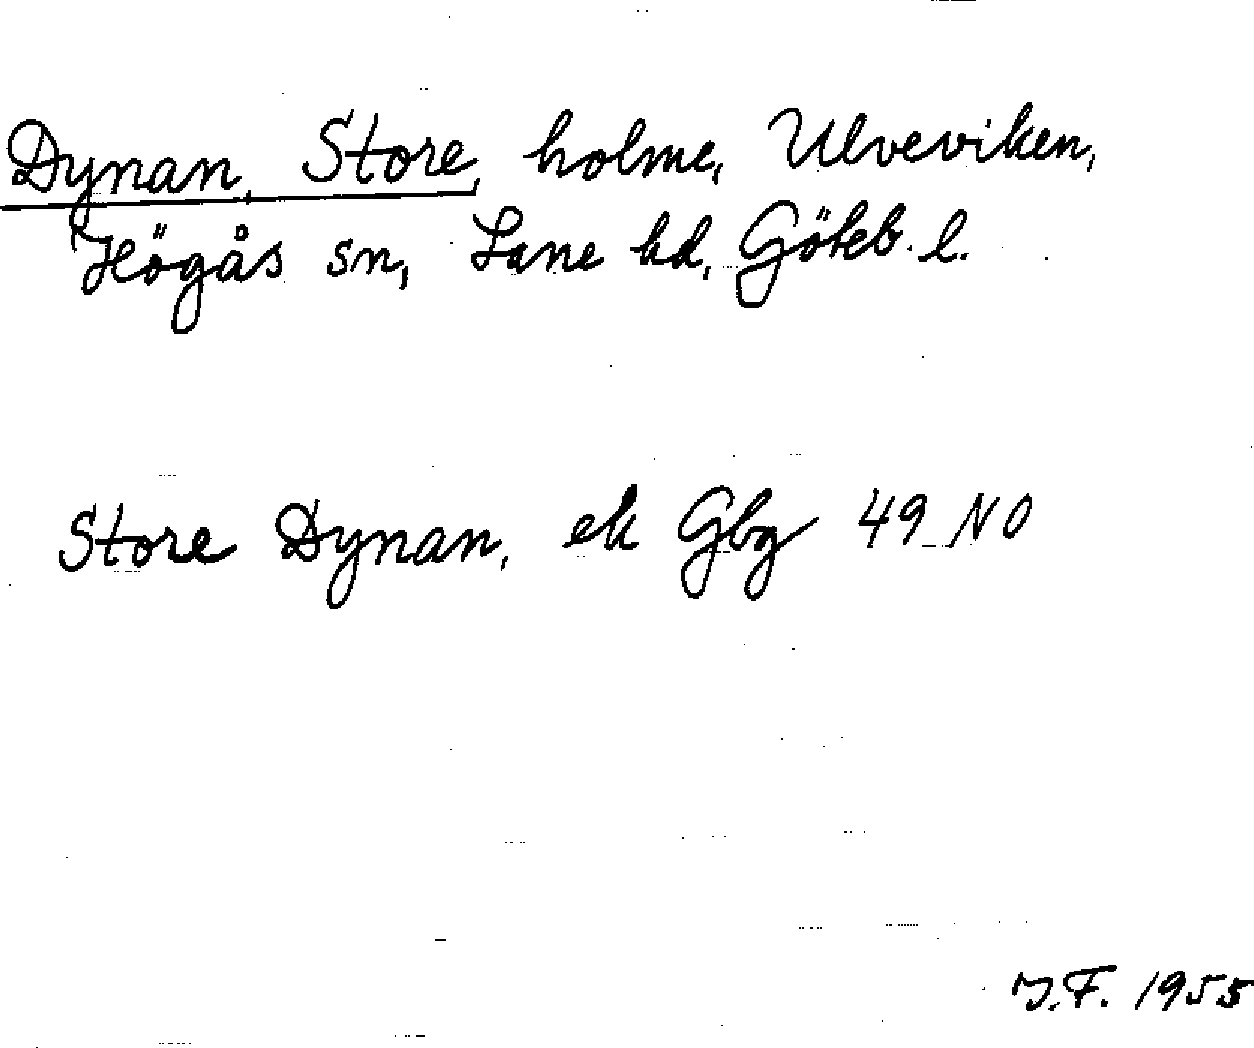 Dynan, Store, holme, Ulveviken,
Högås sn, Lane hd, Göteb. l.
Store Dynan, ek Gbg 49 NO
J.F. 1955